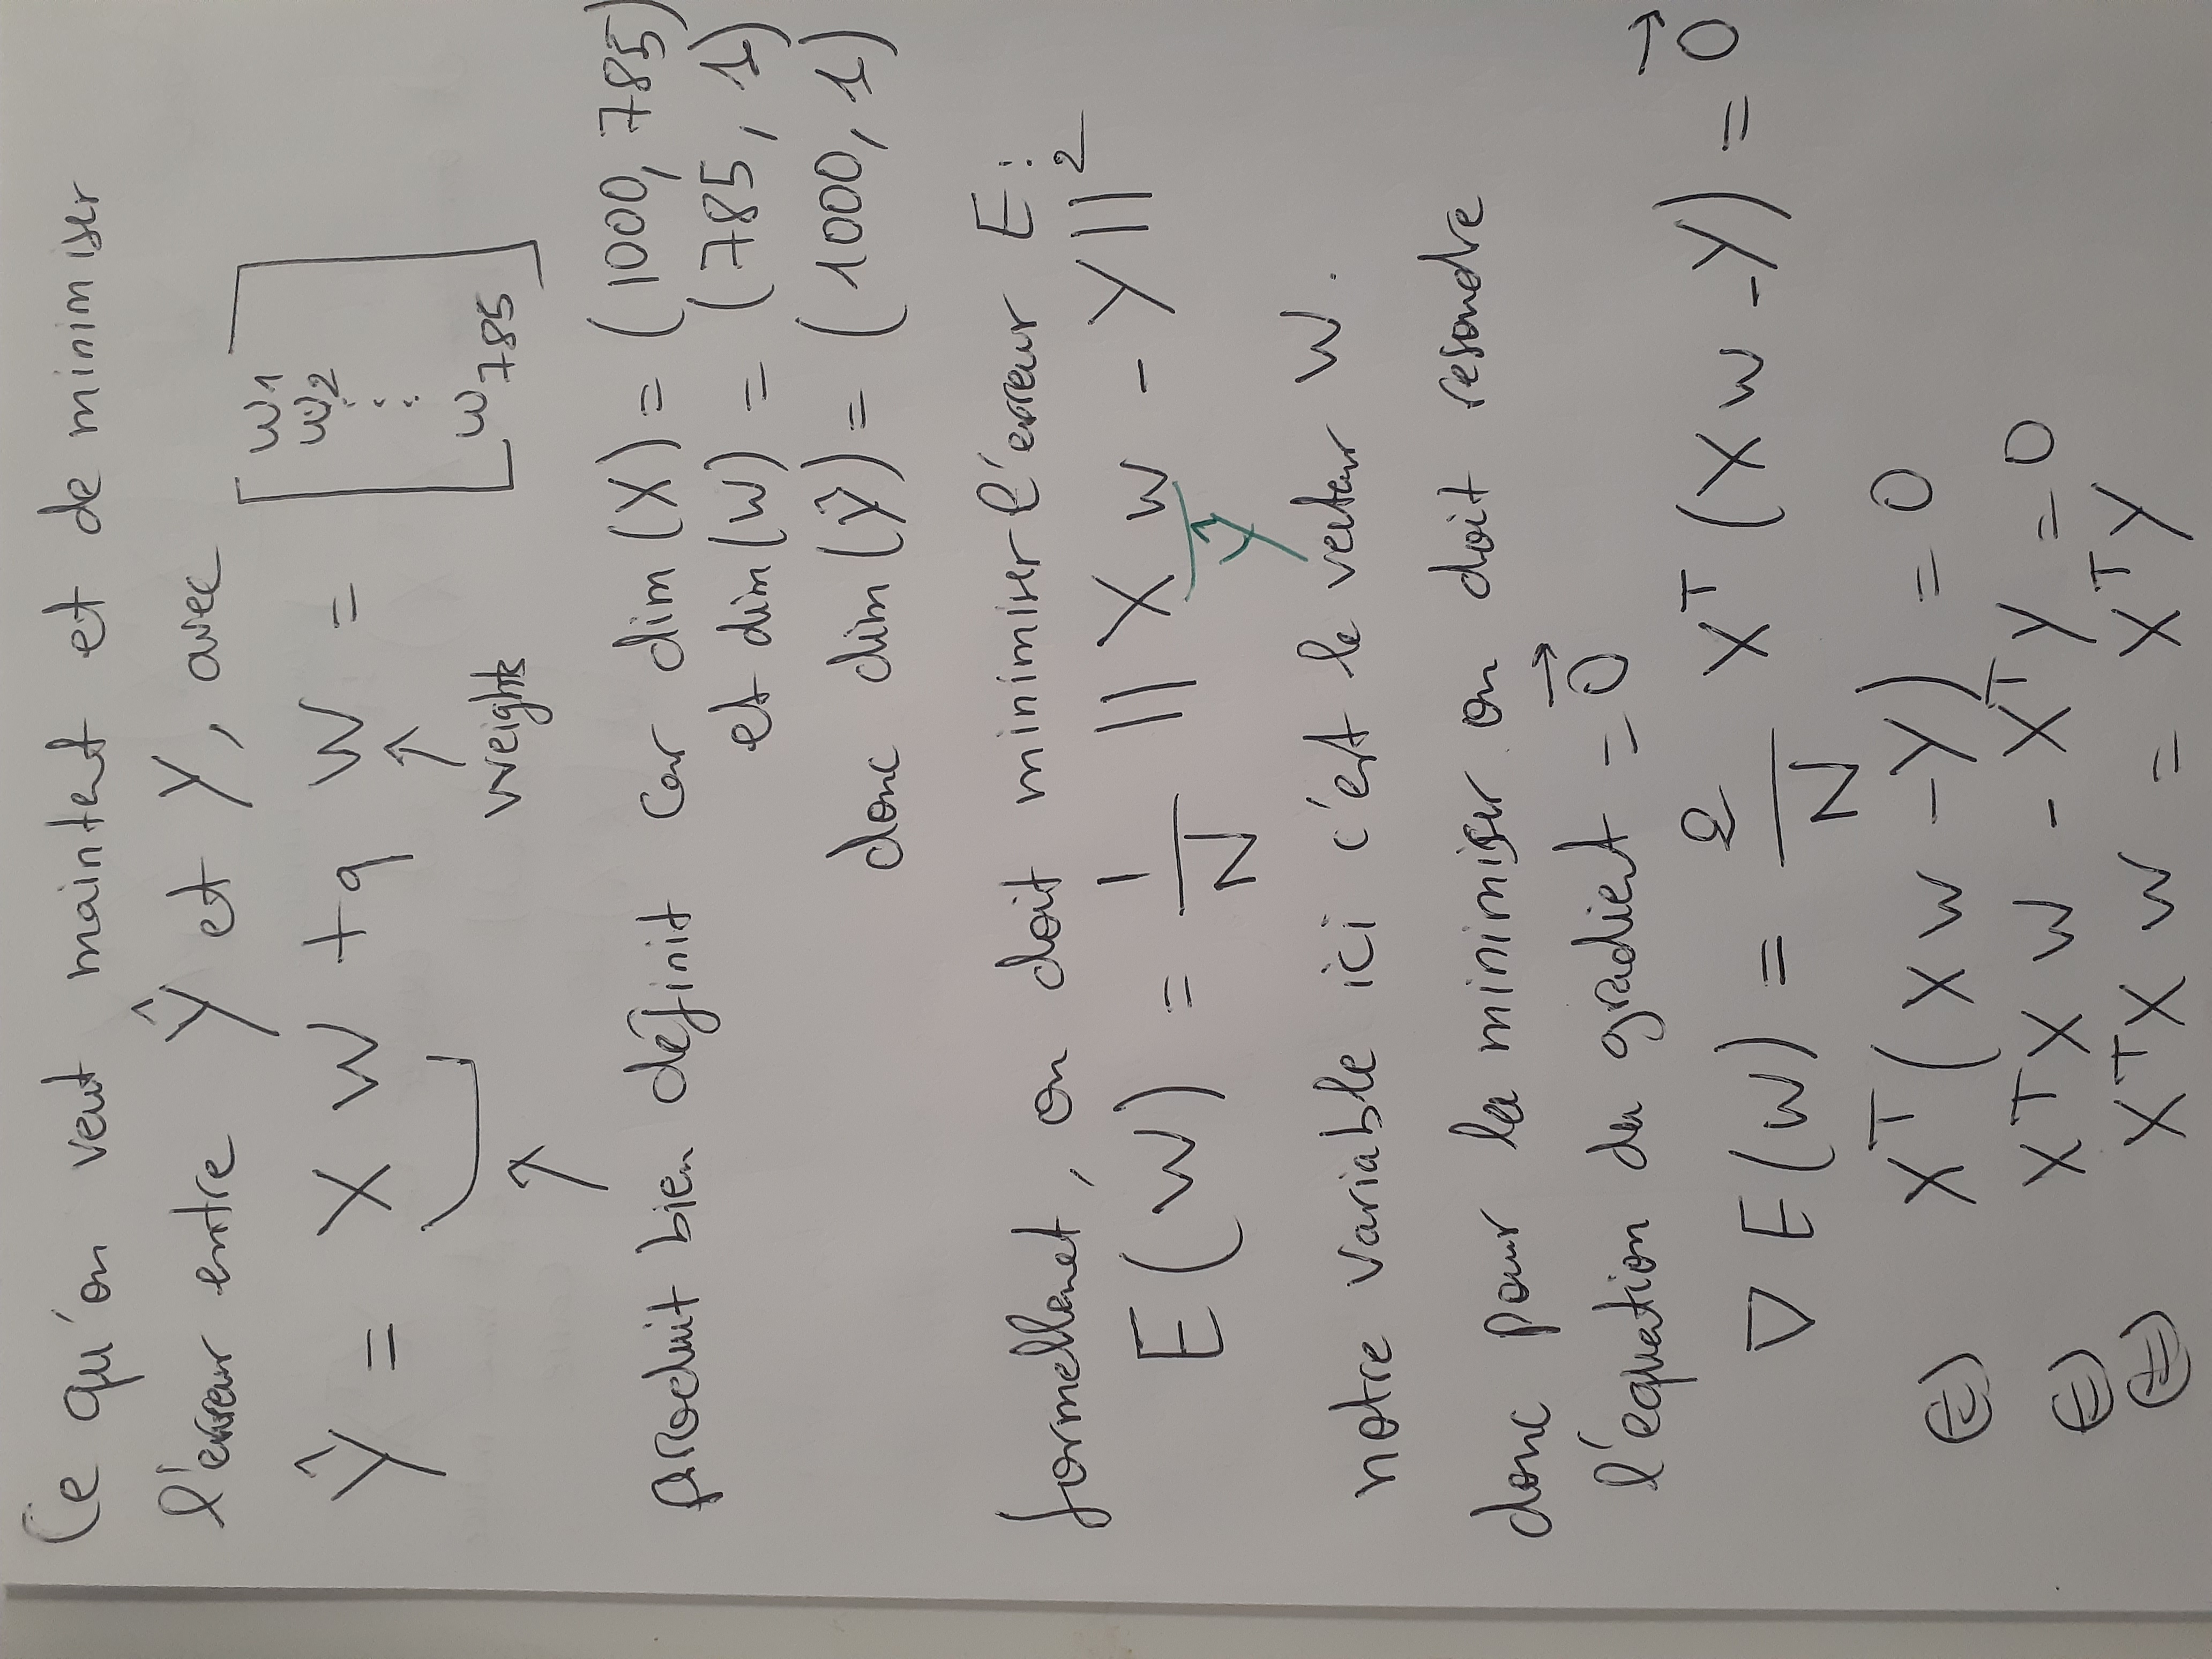 Ce qu'on veut maintent et de minimiser
l'erreur entre Ŷ et Y, avec
Ŷ = X W + q W = [ w1 w2 ⋮ w785 ]
weights
produit bien définit car dim (X) = (1000, 785)
et dim (W) = (785, 1)
donc dim (Ŷ) = (1000, 1)
formellenet, on doit minimiser l'erreur E :
E(W) = 1/N || X W - Y ||²
Ŷ
notre variable ici c'est le vecteur W.
donc pour la minimiser on doit resoudre
l'équation du gradient = 0⃗
∇ E(W) = 2/N Xᵀ (X W - Y) = 0⃗
⇔ Xᵀ (X W - Y) = 0
⇔ XᵀX W - XᵀY = 0
⇔ XᵀX W = XᵀY